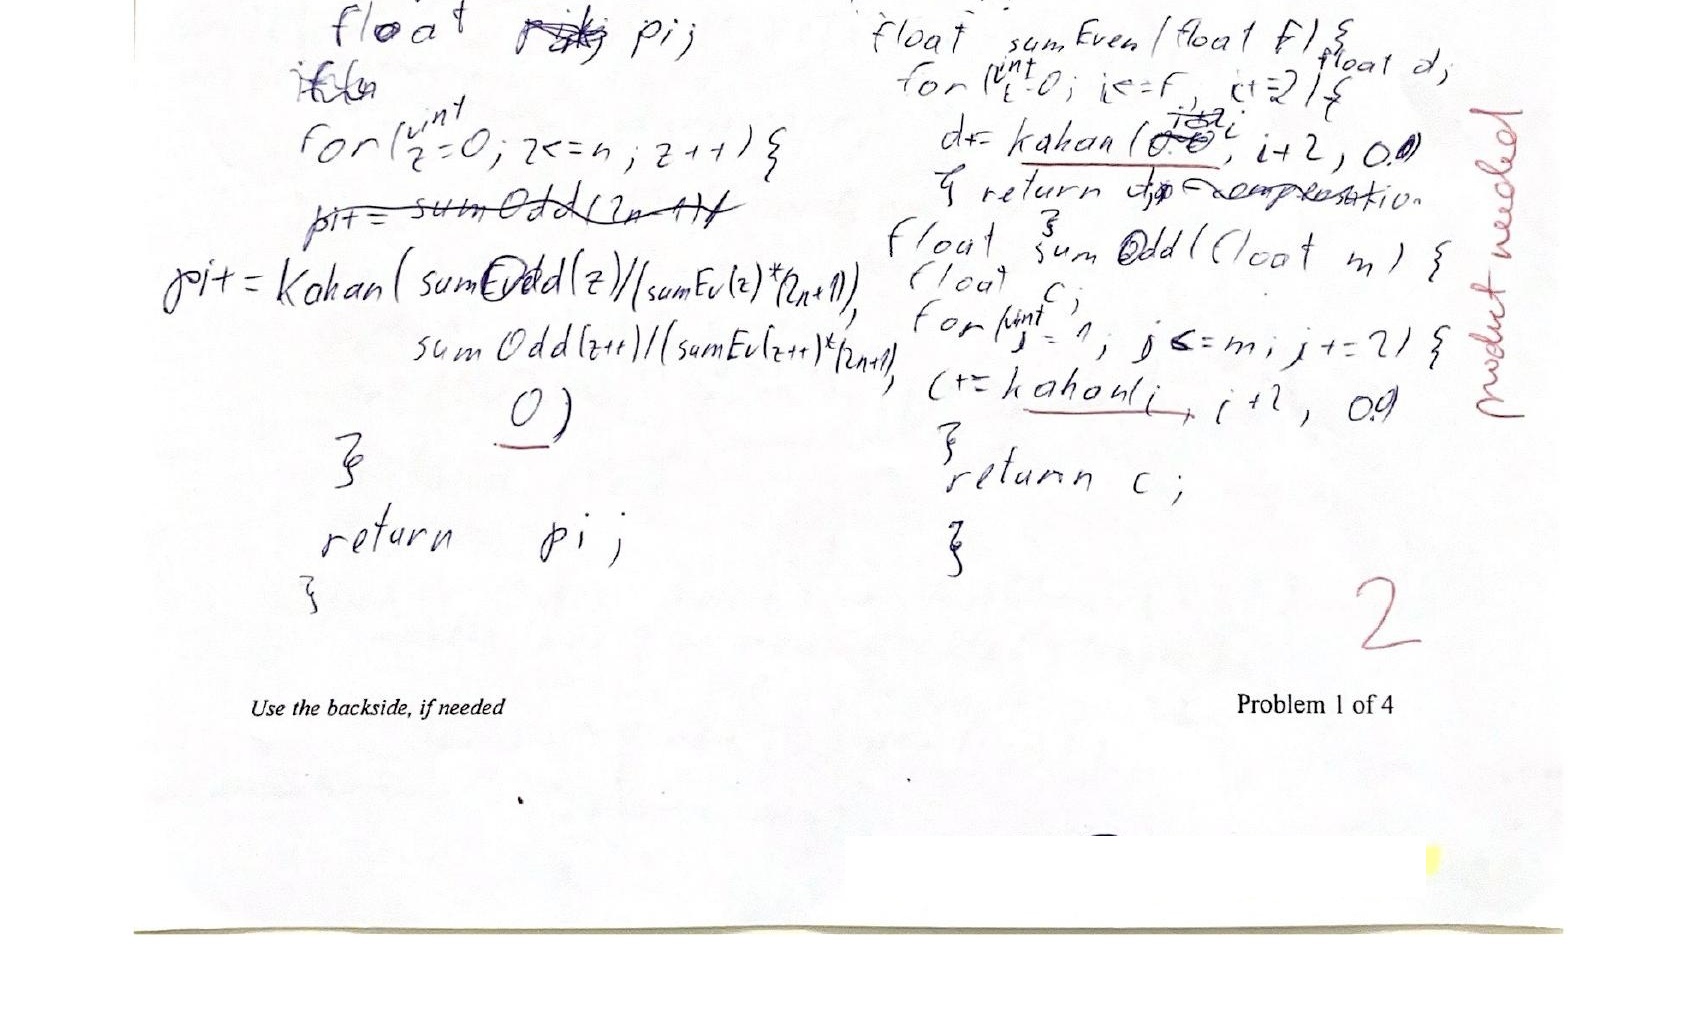 float pi;
for (uint z=0; z<=n; z++) {
pi+= sumOdd(2n+1)/
pi+= Kahan( sumOdd(z)/(sumEv(z)*(2n+1)),
sumOdd(z++)/(sumEv(z++)*(2n+1),
0)
}
return pi;
}
float sumEven(float F) { float d;
for (uint i=0; i<=F, i+=2) {
d+= kahan(i, i+2, 0.0)
} return d;
}
float sumOdd(float m) {
float c;
for (uint j=1; j<=m; j+=2) {
c+= kahan(i, i+2, 0.0)
}
return c;
}
product needed
2
Use the backside, if needed
Problem 1 of 4